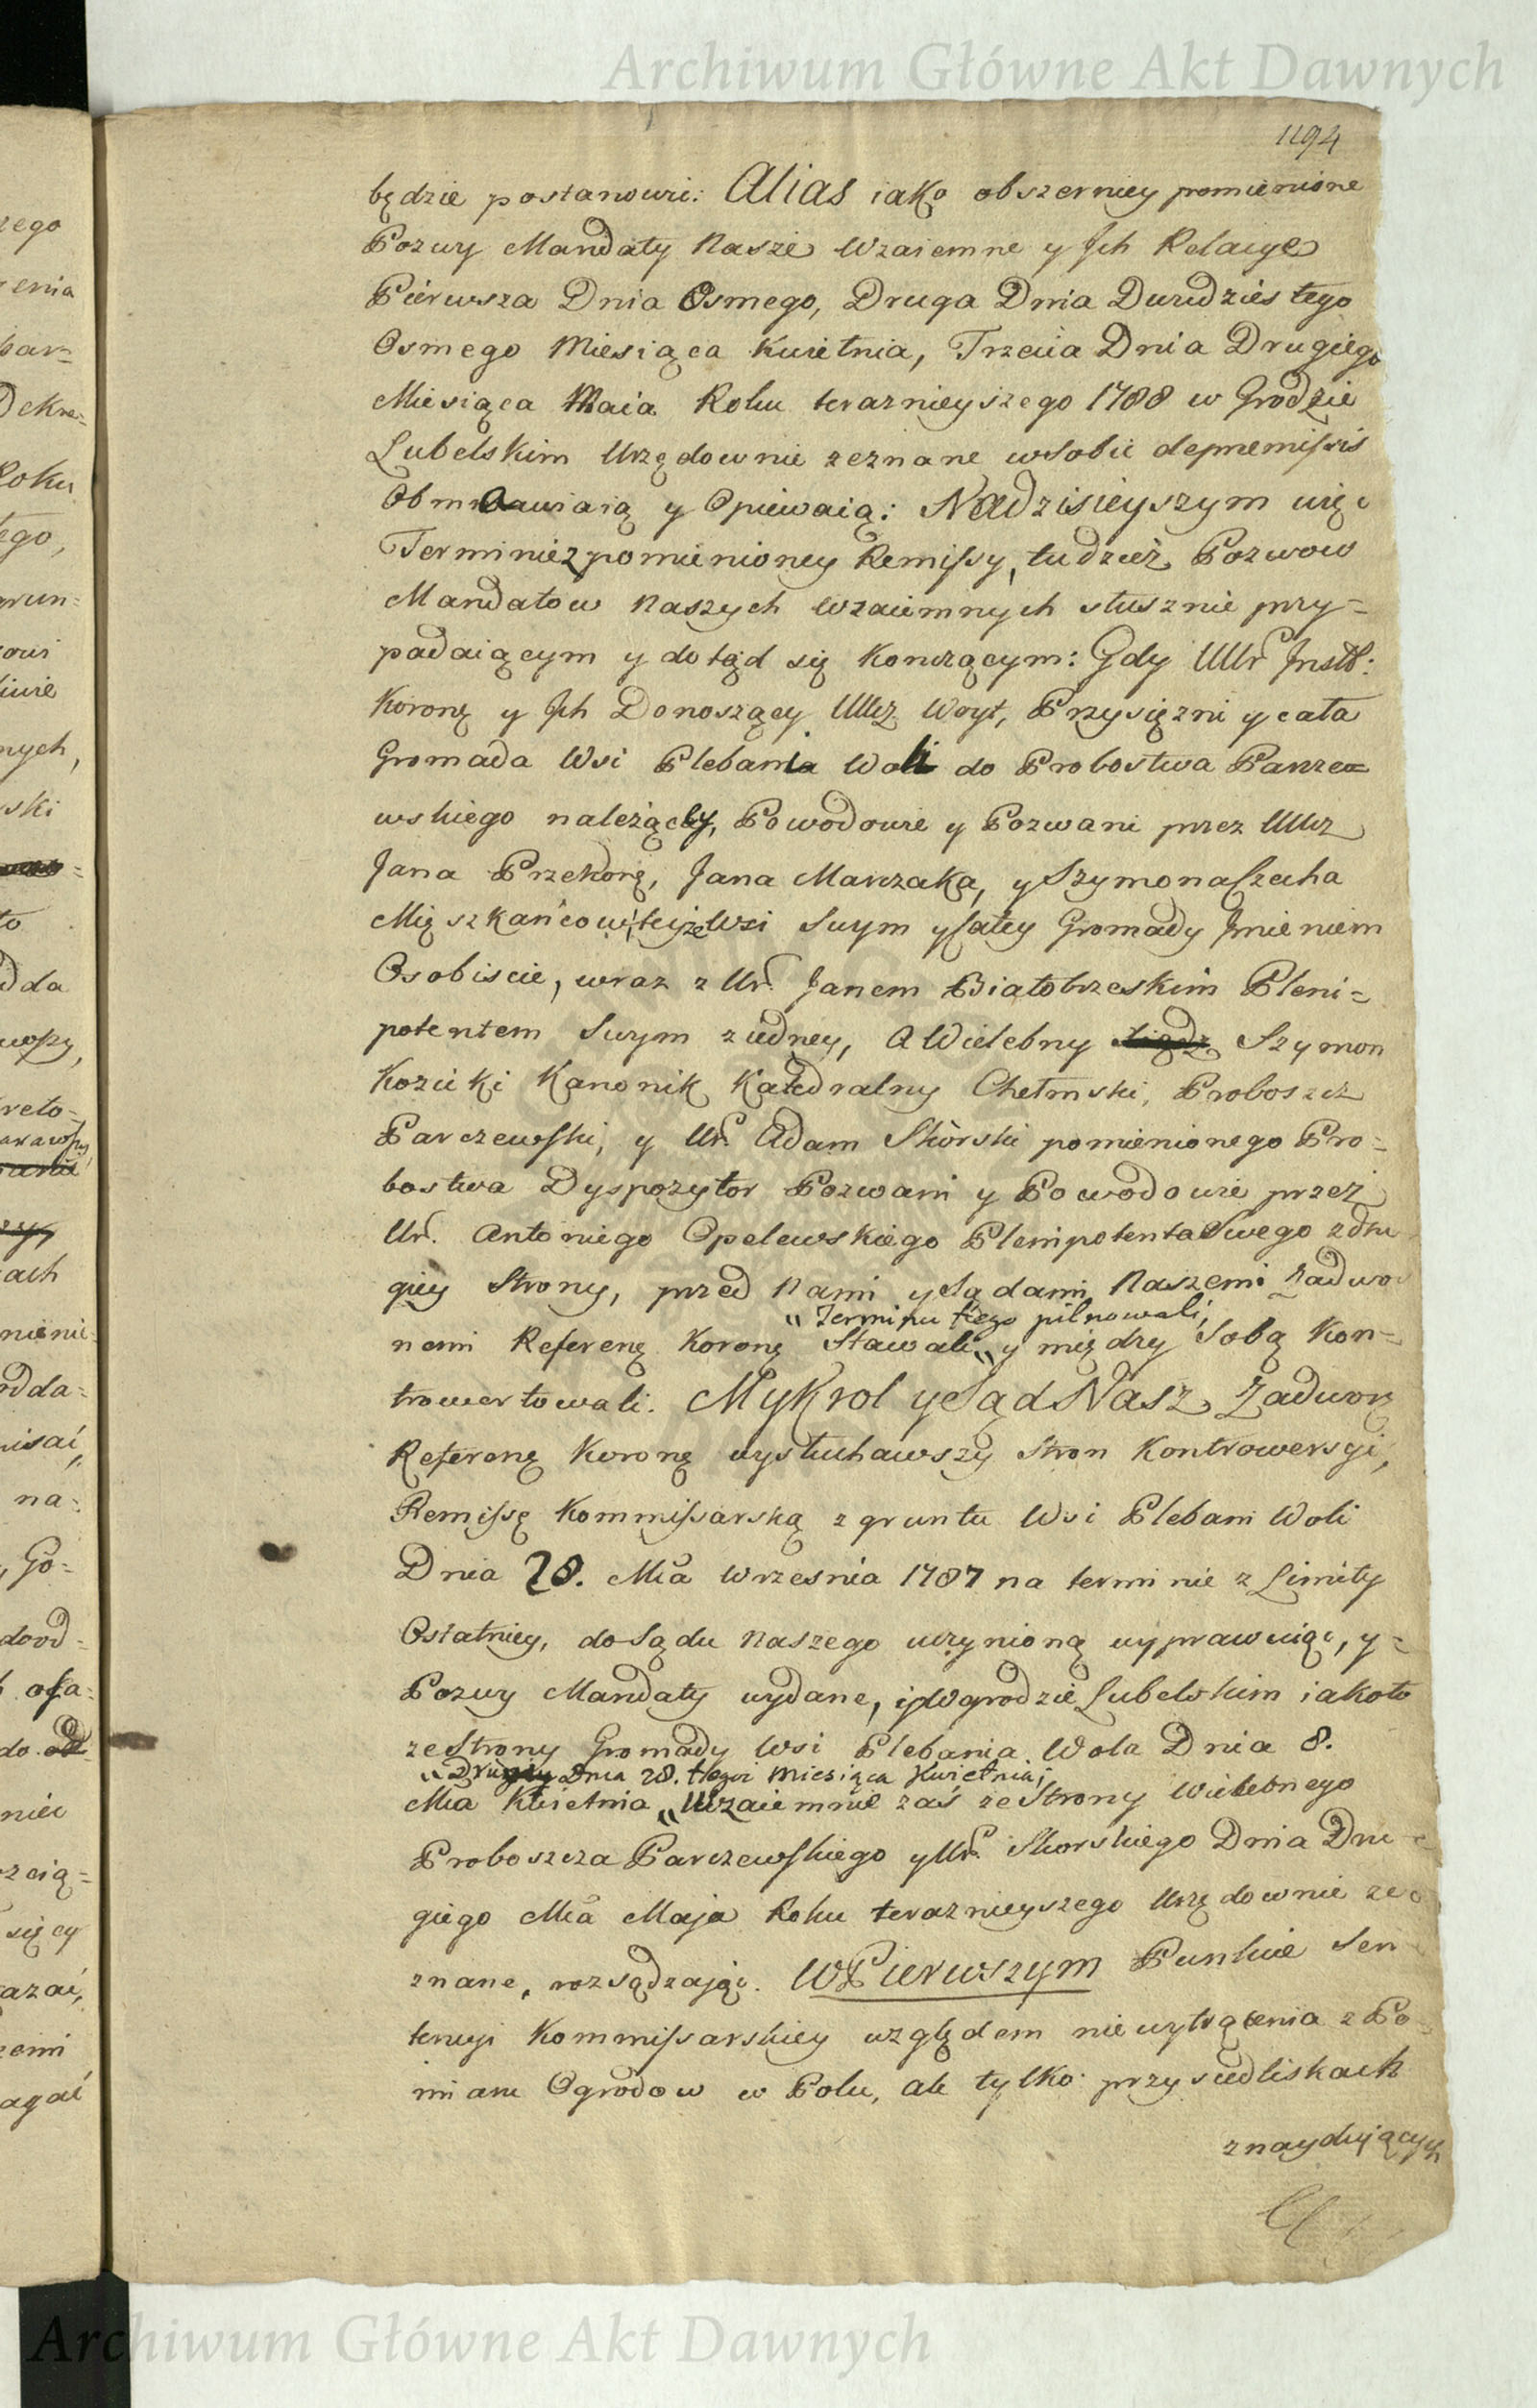 Archiwum Główne Akt Dawnych
1194
będzie postanowi: Alias iako obszerniey pomienione
Pozwy Mandaty Nasze Wzaiemne y Jch Relacye
Pierwsza Dnia Osmego, Druga Dnia Dwudziestego
Osmego Miesiąca Kwietnia, Trzecia Dnia Drugiego
Miesiąca Maia Roku teraznieyszego 1788 w Grodzie
Lubelskim Urzędownie zeznane wSobie depremissis
Obmawiaią y Opiewaią: NaDzisieyszym więc
Terminie z pomienioney Remissy, tudzież Pozwow
Mandatow Naszych Wzaiemnych słusznie przy=
padaiącym y dotąd się Konczącym: Gdy UUr Jnstt:
Koronę y Jch Donoszący UUcz Woyt, Przysięzni y cała
Gromada Wsi Plebania Woli do Probostwa Parcze=
wskiego należący, Powodowie y Pozwani przez UUcz
Jana Przekorę, Jana Marczaka, y Szymona Czecha
Mięszkańcow teyże Wsi Swym y Całey Gromady Jmieniem
Osobiscie, wraz z Ur. Janem Białobrzeskim Pleni=
potentem Swym z iedney, A Wielebny Xiądz Szymon
Kozicki Kanonik Katedralny Chełmski, Proboszcz
Parczewski, y Ur. Adam Skòrski pomienionego Pro=
bostwa Dyspozytor Pozwani y Powodowie przez
Ur. Antoniego Opelewskiego Plenipotenta Swego z dru
giey Strony, przed Nami y Sądami Naszemi Zadwo
"Terminu tego pilnowali,
nemi Referenę Koronę Stawali " y między Sobą Kon=
trowertowali. My Krol y Sąd Nasz Zadworę
Referenę Koronę wysłuchawszy Stron Kontrowersyi,
Remissę Kommissarską z gruntu Wsi Plebani Woli
Dnia 28. Mca Wrzesnia 1787 na terminie z Limity
Ostatniey, do Sądu Naszego uczynioną wyprawuiąc, y=
Pozwy Mandaty wydane, i w Grodzie Lubelskim iako to
ze Strony Gromady Wsi Plebania Wola Dnia 8.
" Drugiey Dnia 28. tegoż Miesiąca Kwietnia,
Mca Kwietnia " Wzaiemnie zaś ze Strony Wielebnego
Proboszcza Parczewskiego y Ur. Skorskiego Dnia Dru
giego Mca Maja Roku teraznieyszego Urzędownie ze
znane, rozsądzając. W Pierwszym Punkcie Sen
tencyi Kommissarskiey względem nie wytrącenia z Po
miaru Ogrodow w Polu, ale tylko przy siedliskach
znayduiących
Archiwum Główne Akt Dawnych